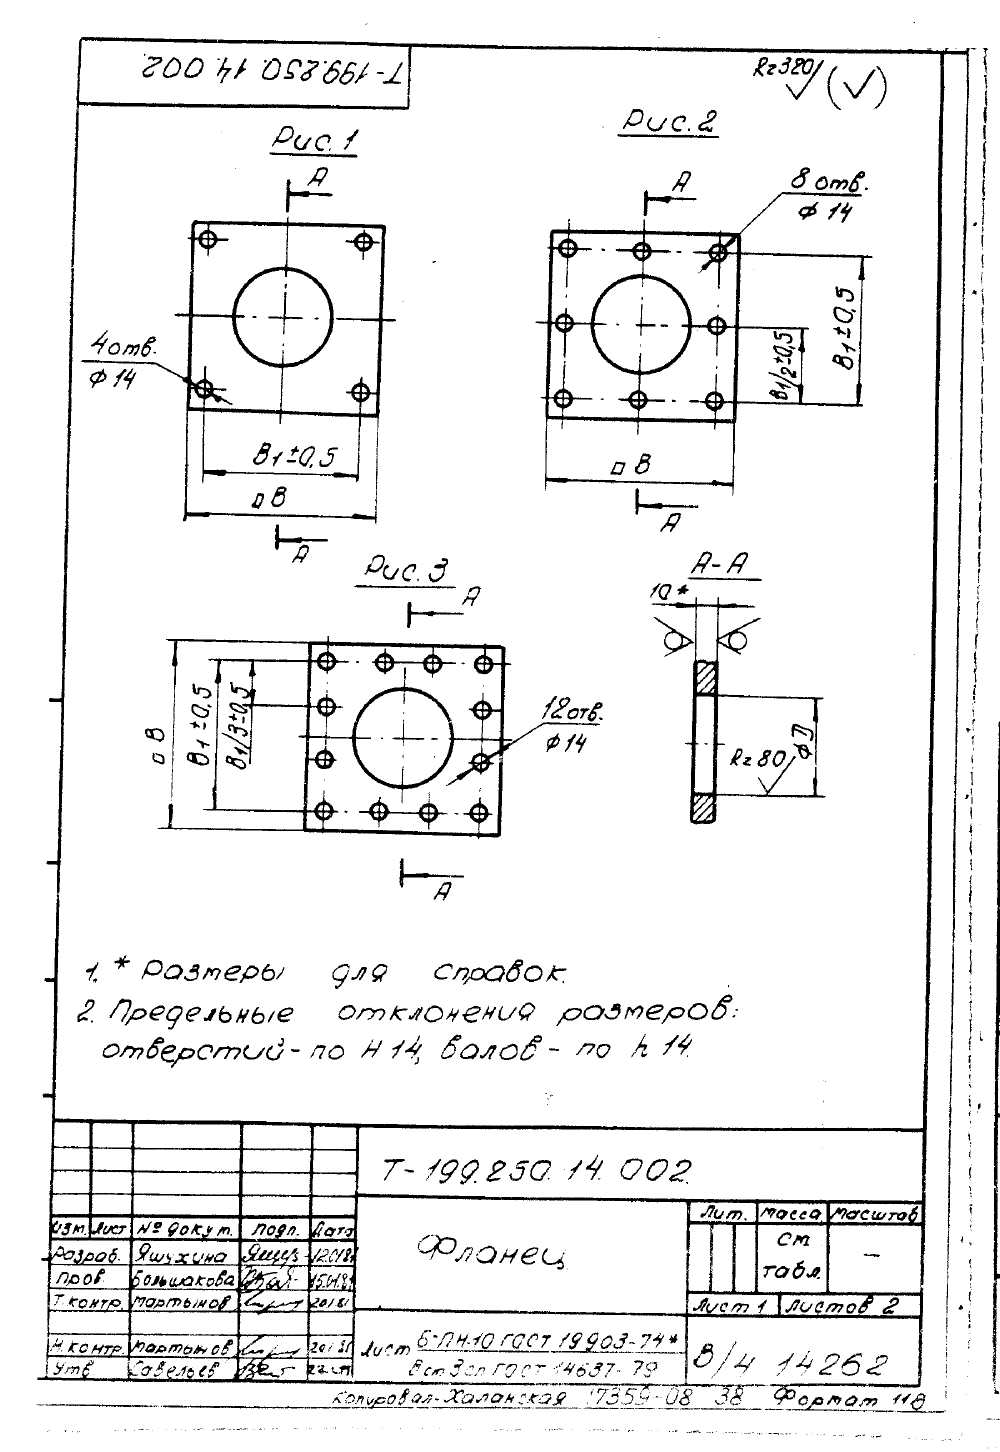 Т-199.250.14.002.
Rz320 (√)
Рис.1
Рис.2
А
А
8 отв.
Ф 14
4 отв.
Ф 14
В1±0,5
В1/2±0,5
В1±0,5
□ В
А
□ В
А
Рис.3
А
А-А
10*
□ В
В1±0,5
В1/3±0,5
12 отв.
Ф 14
Rz 80
ФD
А
1. * Размеры для справок.
2. Предельные отклонения размеров:
отверстий - по Н14, валов - по h 14.
Т-199.250.14.002.
Изм. Лист № докум. Подп. Дата
Разраб. Яшухина
Пров Большакова
Т.контр. Мартынов
Н.контр. Мартынов
Утв Савельев
Фланец
Лит. Масса Масштаб
см табл. —
Лист 1 Листов 2
Лист Б-ПН-10 ГОСТ 19903-74*
Вст3сп ГОСТ 14637-79
В/4 14262
Копировал-Халанская 17359-08 38 Формат 11В